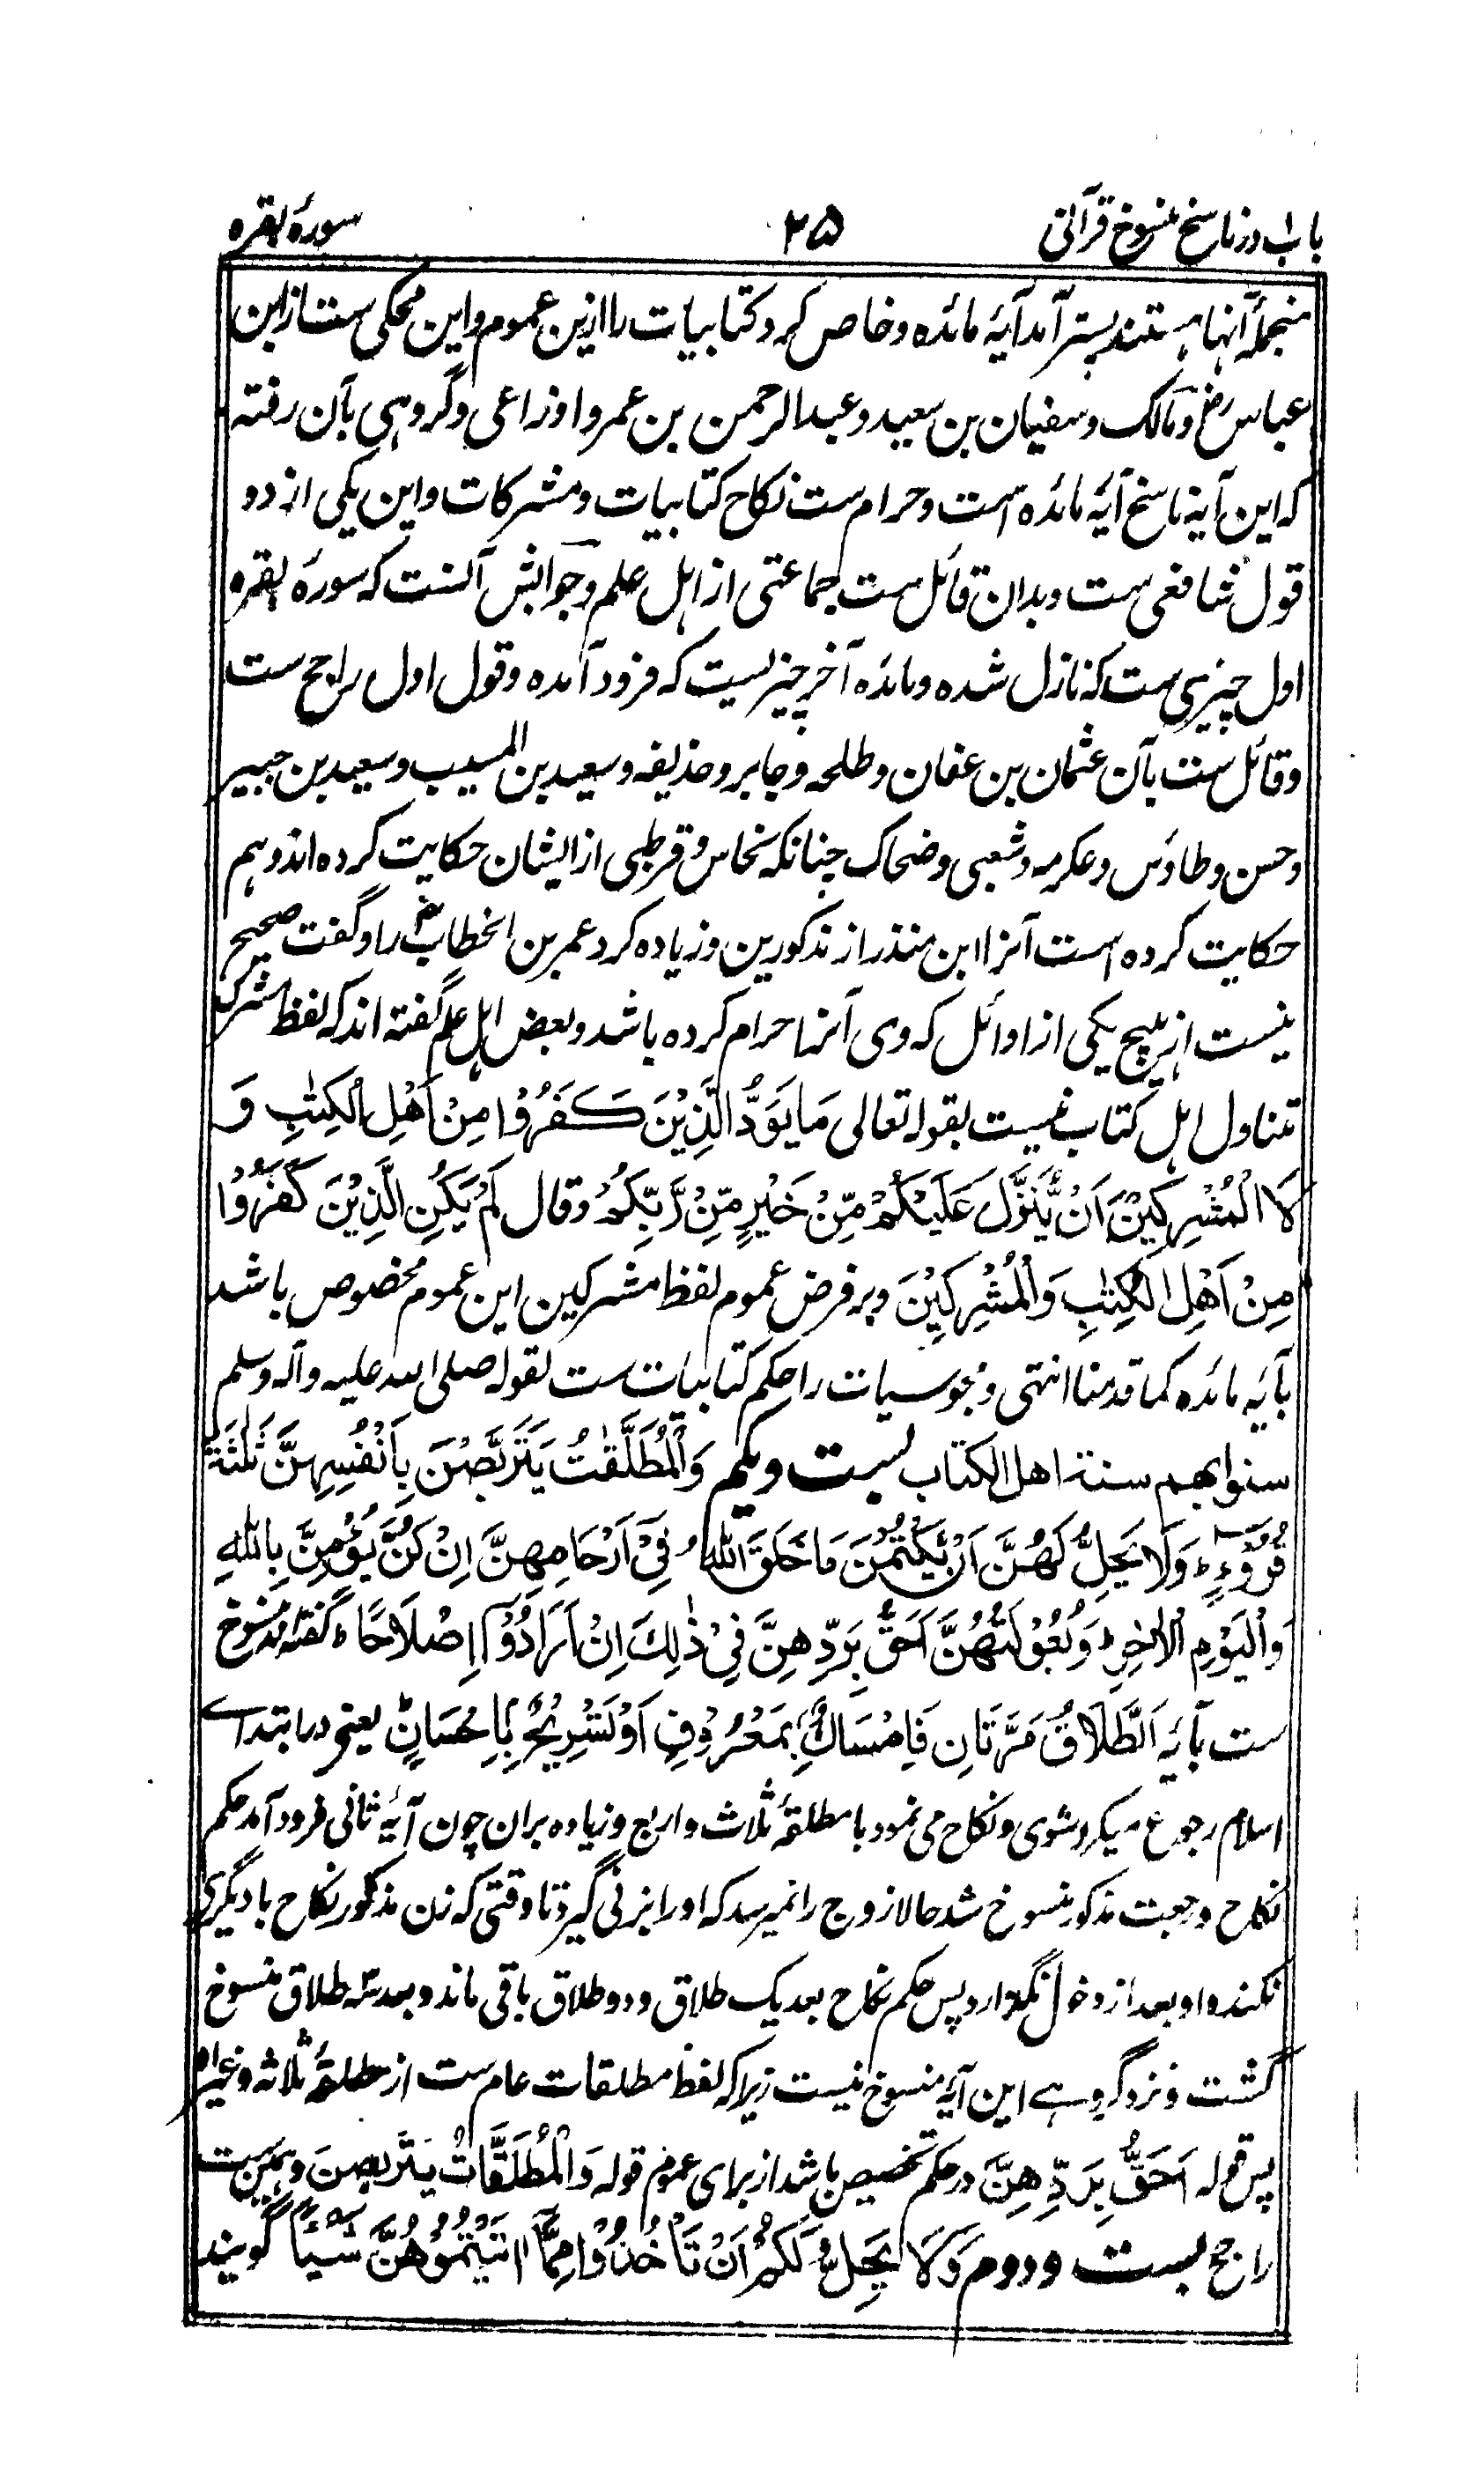 باب ۱ در ناسخ منسوخ قرآنی ۲۵ سورۀ بقره
منجملۀ آنها هستند پستر آمد آیۀ مائده و خاص کرد کتابیات را ازین عموم و این محکی ست از ابن
عباس رض و مالک و سفیان بن سعید و عبد الرحمن بن عمرو اوزاعی و گروهی بآن رفته
که این آیه ناسخ آیۀ مائده است و حرام ست نکاح کتابیات و مشرکات و این یکی از دو
قول شافعی ست و بدان قائل ست جماعتی از اهل علم و جوابش آنست که سورۀ بقره
اول چیزی ست که نازل شده و مائده آخر چیزیست که فرود آمده و قول اول راجح ست
و قائل ست بآن عثمان بن عفان و طلحه و جابر و حذیفه و سعید بن المسیب و سعید بن جبیر
و حسن و طاوس و عکرمه و شعبی و ضحاک چنانکه نحاس و قرطبی از ایشان حکایت کرده اند و هم
حکایت کرده است آنرا ابن منذر از مذکورین و زیاده کرد عمر بن الخطاب رض را و گفت صحیح
نیست از هیچ یکی از اوائل که وی آنرا حرام کرده باشد و بعض اهل علم گفته اند که لفظ مشرک
متناول اهل کتاب نیست بقوله تعالی مَا یَوَدُّ الَّذِیْنَ کَفَرُوْا مِنْ اَهْلِ الْکِتٰبِ وَ
لَا الْمُشْرِکِیْنَ اَنْ یُّنَزَّلَ عَلَیْکُمْ مِّنْ خَیْرٍ مِّنْ رَّبِّکُمْ و قال لَمْ یَکُنِ الَّذِیْنَ کَفَرُوْا
مِنْ اَهْلِ الْکِتٰبِ وَالْمُشْرِکِیْنَ و بر فرض عموم لفظ مشرکین این عموم مخصوص باشد
بآیۀ مائده کما قدمنا انتهی و مجوسیات را حکم کتابیات ست لقوله صلی الله علیه وآله وسلم
سنوا بهم سنة اهل الکتاب بست و یکم وَالْمُطَلَّقٰتُ یَتَرَبَّصْنَ بِاَنْفُسِهِنَّ ثَلٰثَةَ
قُرُوْٓءٍ ط وَلَا یَحِلُّ لَهُنَّ اَنْ یَّکْتُمْنَ مَا خَلَقَ اللّٰهُ فِیْٓ اَرْحَامِهِنَّ اِنْ کُنَّ یُؤْمِنَّ بِاللّٰهِ
وَالْیَوْمِ الْاٰخِرِ ط وَبُعُوْلَتُهُنَّ اَحَقُّ بِرَدِّهِنَّ فِیْ ذٰلِکَ اِنْ اَرَادُوْٓا اِصْلَاحًا ط گفته اند منسوخ
ست بآیۀ اَلطَّلَاقُ مَرَّتَانِ فَاِمْسَاكٌۢ بِمَعْرُوْفٍ اَوْ تَسْرِیْحٌۢ بِاِحْسَانٍ ط یعنی در ابتدای
اسلام رجوع میکرد شوی و نکاح می نمود با مطلقۀ ثلاث و اربع و زیاده بران چون آیۀ ثانی فرود آمد حکم
نکاح و رجعت مذکور منسوخ شد حالا زوج را نمیرسد که او را بزنی گیرد تا وقتی که زن مذکور نکاح با دیگری
نکند و او بعد از دخول نگذارد پس حکم نکاح بعد یک طلاق و دو طلاق باقی ماند و بعد سه طلاق منسوخ
گشت و نزد گروهے این آیه منسوخ نیست زیراکه لفظ مطلقات عام ست از مطلقۀ ثلاثه و غیرها
پس قوله اَحَقُّ بِرَدِّهِنَّ در حکم تخصیص باشد از برای عموم قوله وَالْمُطَلَّقَاتُ یَتَرَبَّصْنَ و همین ست
راجح بست و دوم وَلَا یَحِلُّ لَکُمْ اَنْ تَاْخُذُوْا مِمَّآ اٰتَیْتُمُوْهُنَّ شَیْئًا گویند